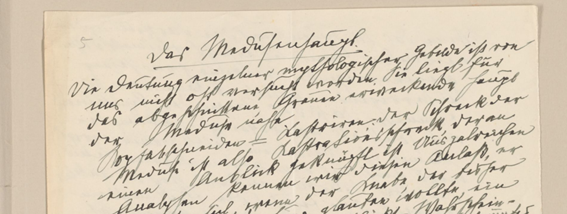 5
Das Medusenhaupt.
Die Deutung einzelner mythologischer Gebilde ist von
uns nicht oft versucht worden. Sie liegt für
das abgeschnittene Grauen erweckende Haupt
der Meduse nahe.
Kopfabschneiden = Kastriren. Der Schreck der
Meduse ist also Kastrationsschreck, der an
einen Anblick geknüpft ist. Aus zahlreichen
Analysen kennen wir diesen Anlaß, er
wenn der Knabe der bisher
glauben wollte, ein